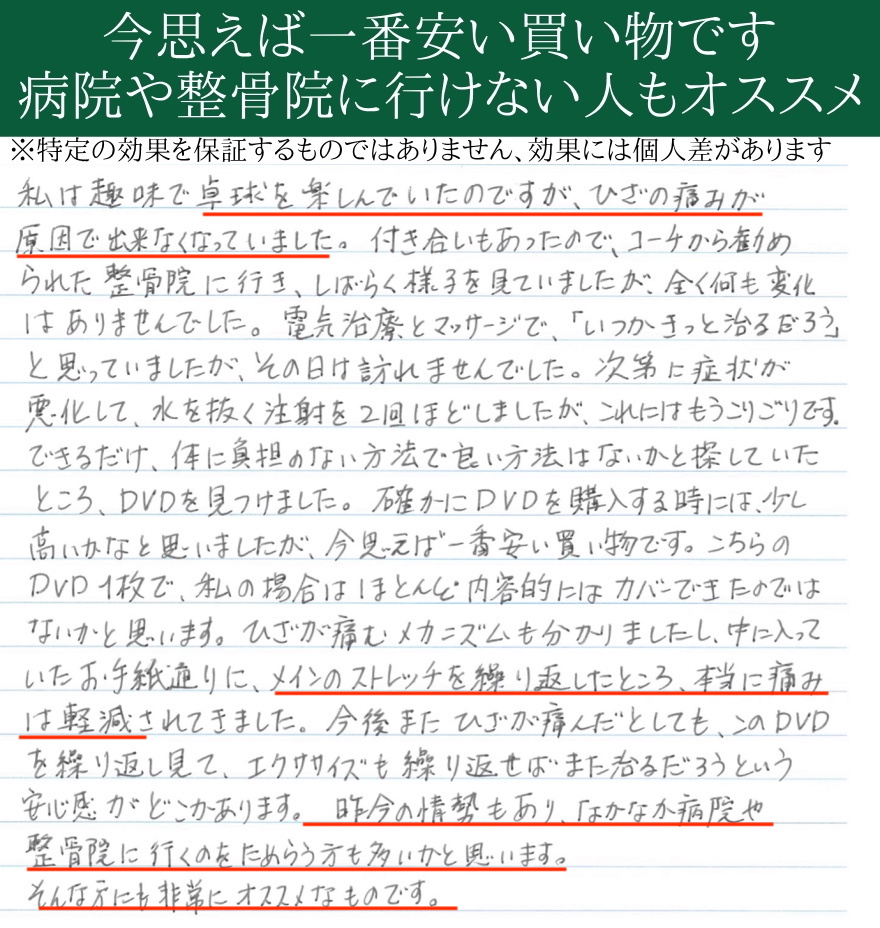 今思えば一番安い買い物です
病院や整骨院に行けない人もオススメ
※特定の効果を保証するものではありません、効果には個人差があります
私は趣味で卓球を楽しんでいたのですが、ひざの痛みが
原因で出来なくなっていました。付き合いもあったので、コーチから勧め
られた整骨院に行き、しばらく様子を見ていましたが、全く何も変化
はありませんでした。電気治療とマッサージで、「いつかきっと治るだろう」
と思っていましたが、その日は訪れませんでした。次第に症状が
悪化して、水を抜く注射を2回ほどしましたが、これにはもうこりごりです。
できるだけ、体に負担のない方法で良い方法はないかと探していた
ところ、DVDを見つけました。確かにDVDを購入する時には、少し
高いかなと思いましたが、今思えば一番安い買い物です。こちらの
DVD1枚で、私の場合はほとんど内容的にはカバーできたのでは
ないかと思います。ひざが痛むメカニズムも分かりましたし、中に入って
いたお手紙通りに、メインのストレッチを繰り返したところ、本当に痛み
は軽減されてきました。今後またひざが痛んだとしても、このDVD
を繰り返し見て、エクササイズも繰り返せばまた治るだろうという
安心感がどこかあります。昨今の情勢もあり、なかなか病院や
整骨院に行くのをためらう方も多いかと思います。
そんな方にも非常にオススメなものです。